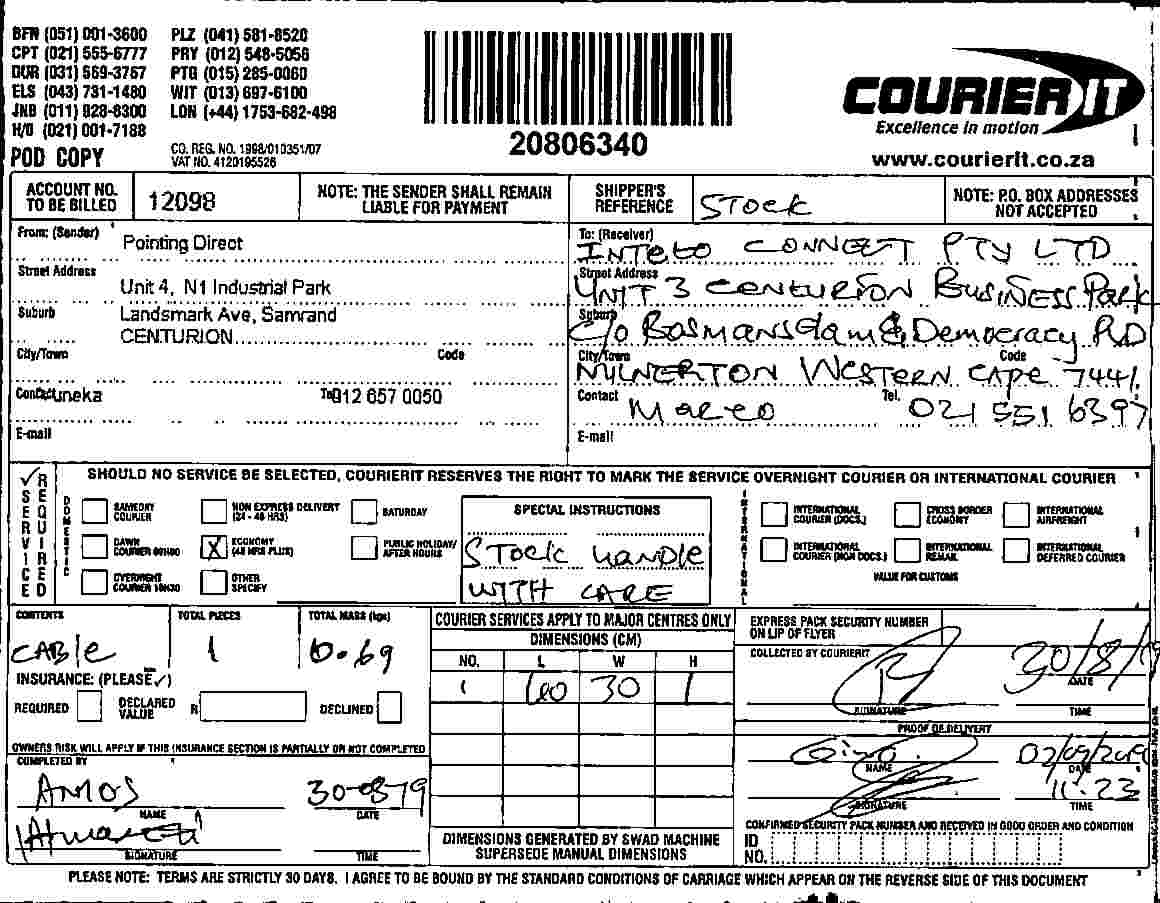 BFN (051) 001-3600 PLZ (041) 581-8520
CPT (021) 555-6777 PRY (012) 548-5056
DUR (031) 569-3757 PTG (015) 285-0060
ELS (043) 731-1480 WIT (013) 697-6100
JNB (011) 828-6300 LON (+44) 1753-682-498
H/O (021) 001-7188
POD COPY
CO. REG. NO. 1998/010351/07
VAT NO. 4120195526
20806340
COURIER IT
Excellence in motion
www.courierit.co.za
ACCOUNT NO. TO BE BILLED 12098
NOTE: THE SENDER SHALL REMAIN LIABLE FOR PAYMENT
SHIPPER'S REFERENCE STOCK
NOTE: P.O. BOX ADDRESSES NOT ACCEPTED
From: (Sender) Pointing Direct
Street Address Unit 4, N1 Industrial Park
Suburb Landsmark Ave, Samrand
CENTURION
City/Town Code
Contact uneka Tel 012 657 0050
E-mail
To: (Receiver)
CONNECT PTY LTD
Street Address
UNIT 3 CENTURION BUSINESS Park
Suburb
C/o Bosmansdam & Democracy RD
City/Town Code
MILNERTON WESTERN CAPE 7441
Contact Tel.
Marco 021 551 6397
E-mail
✓ SERVICE REQUIRED
SHOULD NO SERVICE BE SELECTED, COURIERIT RESERVES THE RIGHT TO MARK THE SERVICE OVERNIGHT COURIER OR INTERNATIONAL COURIER
DOMESTIC
SAMEDAY COURIER
NON EXPRESS DELIVERY (24 - 48 HRS)
SATURDAY
DAWN COURIER 09H00
X ECONOMY (48 HRS PLUS)
PUBLIC HOLIDAY/ AFTER HOURS
OVERNIGHT COURIER 10H30
OTHER SPECIFY
SPECIAL INSTRUCTIONS
STOCK HANDLE
WITH CARE
INTERNATIONAL
INTERNATIONAL COURIER (DOCS.)
CROSS BORDER ECONOMY
INTERNATIONAL AIRFREIGHT
INTERNATIONAL COURIER (NON DOCS.)
INTERNATIONAL REMAIL
INTERNATIONAL DEFERRED COURIER
VALUE FOR CUSTOMS
CONTENTS TOTAL PIECES TOTAL MASS (kgs)
CABLE 1 0.69
INSURANCE: (PLEASE ✓)
REQUIRED DECLARED VALUE R DECLINED
OWNERS RISK WILL APPLY IF THIS INSURANCE SECTION IS PARTIALLY OR NOT COMPLETED
COMPLETED BY
AMOS 30-08-19
NAME DATE
SIGNATURE TIME
COURIER SERVICES APPLY TO MAJOR CENTRES ONLY
DIMENSIONS (CM)
NO. L W H
1 40 30 1
DIMENSIONS GENERATED BY SWAD MACHINE
SUPERSEDE MANUAL DIMENSIONS
EXPRESS PACK SECURITY NUMBER
ON LIP OF FLYER
COLLECTED BY COURIERIT
30/8/19
DATE
SIGNATURE TIME
PROOF OF DELIVERY
02/09/2019
NAME DATE
11:23
SIGNATURE TIME
CONFIRMED SECURITY PACK NUMBER AND RECEIVED IN GOOD ORDER AND CONDITION
ID NO.
PLEASE NOTE: TERMS ARE STRICTLY 30 DAYS. I AGREE TO BE BOUND BY THE STANDARD CONDITIONS OF CARRIAGE WHICH APPEAR ON THE REVERSE SIDE OF THIS DOCUMENT